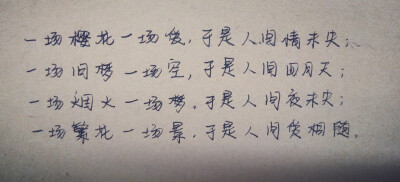 一场樱花一场傻,于是人间情未央;
一场旧梦一场空,于是人间四月天;
一场烟火一场梦,于是人间夜未央;
一场繁花一场景,于是人间伐相随。